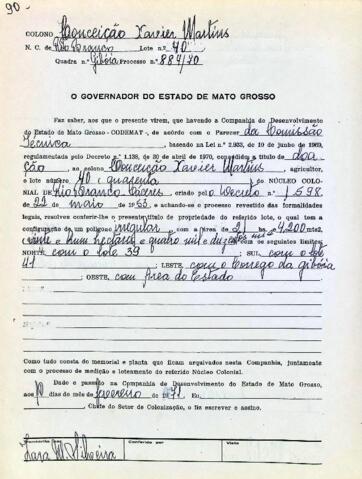 90-
COLONO Conceição Xavier Martins
N. C. de Rio Branco Lote n.º 40
Quadra n.º Gibóia Processo n.º 884/70
O GOVERNADOR DO ESTADO DE MATO GROSSO
Faz saber, aos que o presente virem, que havendo a Companhia de Desenvolvimento
do Estado de Mato Grosso - CODEMAT -, de acôrdo com o Parecer da Comissão
Tecnica, baseado na Lei n.º 2.933, de 19 de Junho de 1969,
regulamentada pelo Decreto n.º 1.138, de 30 de abril de 1970, concedido a título de doa
ção ao colono Conceição Xavier Martins, agricultor,
o lote número 40 quarenta do NÚCLEO COLO-
NIAL DE Rio Branco Cáceres, criado pelo Decreto n.º 1.598,
de 22 de maio de 1953, e achando-se o processo revestido das formalidades
legais, resolveu conferir-lhe o presente título de propriedade do referido lote, o qual tem a
configuração de um polígono irregular com a área de 21 ha 4.200 mts2,
vinte e hum hectares e quatro mil e duzentos mts² com os seguintes limites:
NORTE com o lote 39; SUL com o lote
41; LESTE, com o Corrego da gibóia
; OESTE, com Área do Estado
Como tudo consta do memorial e planta que ficam arquivados nesta Companhia, juntamente
com o processo de medição e loteamento do referido Núcleo Colonial.
Dado e passado na Companhia de Desenvolvimento do Estado de Mato Grosso,
aos 10 dias do mês de fevereiro de 1971 Eu,
, Chefe do Setor de Colonização, o fiz escrever e assino.
Conferido por Visto